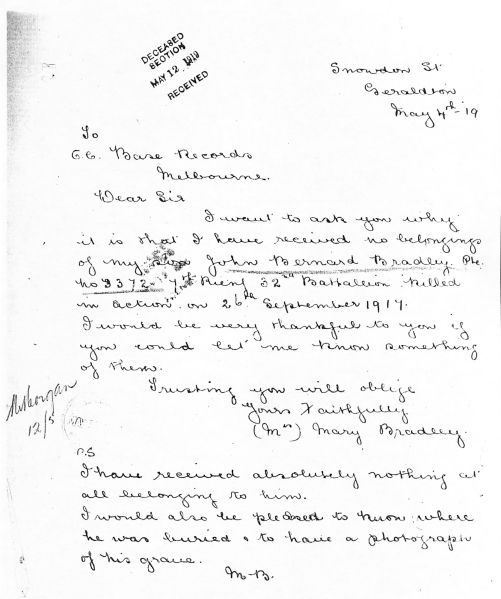 DECEASED
SECTION
MAY 12 1919
RECEIVED
Snowdon St
Geraldton
May 4th - 19
To
O.C. Base Records
Melbourne.
Dear Sir
I want to ask you why
it is that I have received no belongings
of my son John Bernard Bradley. Pte.
No 3372 7th Reinf 32nd Battalion killed
in action on 26th September 1917.
I would be very thankful to you if
you could let me know something
of them.
Trusting you will oblige
Yours Faithfully
(Mrs) Mary Bradley.
12/5
P.S
I have received absolutely nothing at
all belonging to him.
I would also be pleased to know where
he was buried & to have a photograph
of his grave.
M.B.